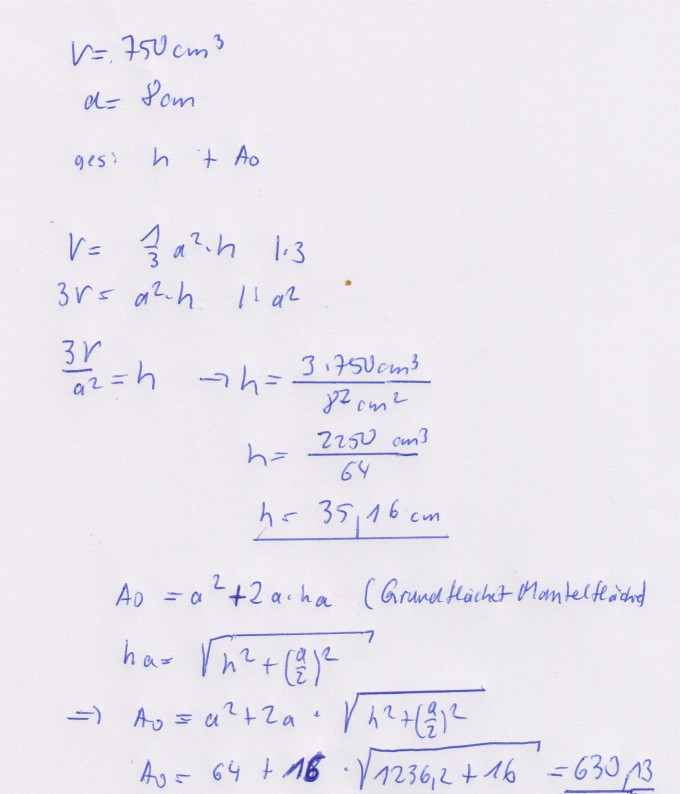 V= 750 cm³
a= 8cm
ges: h + AO
V= 1/3 a²·h |·3
3V= a²·h |: a²
3V/a² = h → h= 3·750cm³/8² cm²
h= 2250 cm³/64
h= 35,16 cm
AO = a²+2a·ha (Grundfläche+Mantelfläche)
ha= √(h²+(a/2)²)
=> AO = a²+2a · √(h²+(a/2)²)
AO = 64 + 16 · √(1236,2 + 16) = 630,13